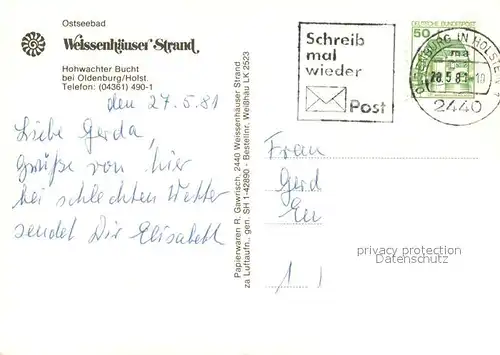 Ostseebad
Weissenhäuser Strand
Hohwachter Bucht
bei Oldenburg/Holst.
Telefon: (04361) 490-1
den 27.5.81
Liebe Gerda,
Grüße von hier
bei schlechten Wetter
sendet Dir Elisabeth
Papierwaren R. Gawrisch, 2440 Weissenhäuser Strand
za Luftaufn., gen. SH 1-42890 - Bestellnr. Weißhäu LK 2523
Schreib
mal
wieder
Post
DEUTSCHE BUNDESPOST
50
OLDENBURG IN HOLSTEIN 1
ma
28.5.81-10
2440
Frau
Gerd
privacy protection
Datenschutz